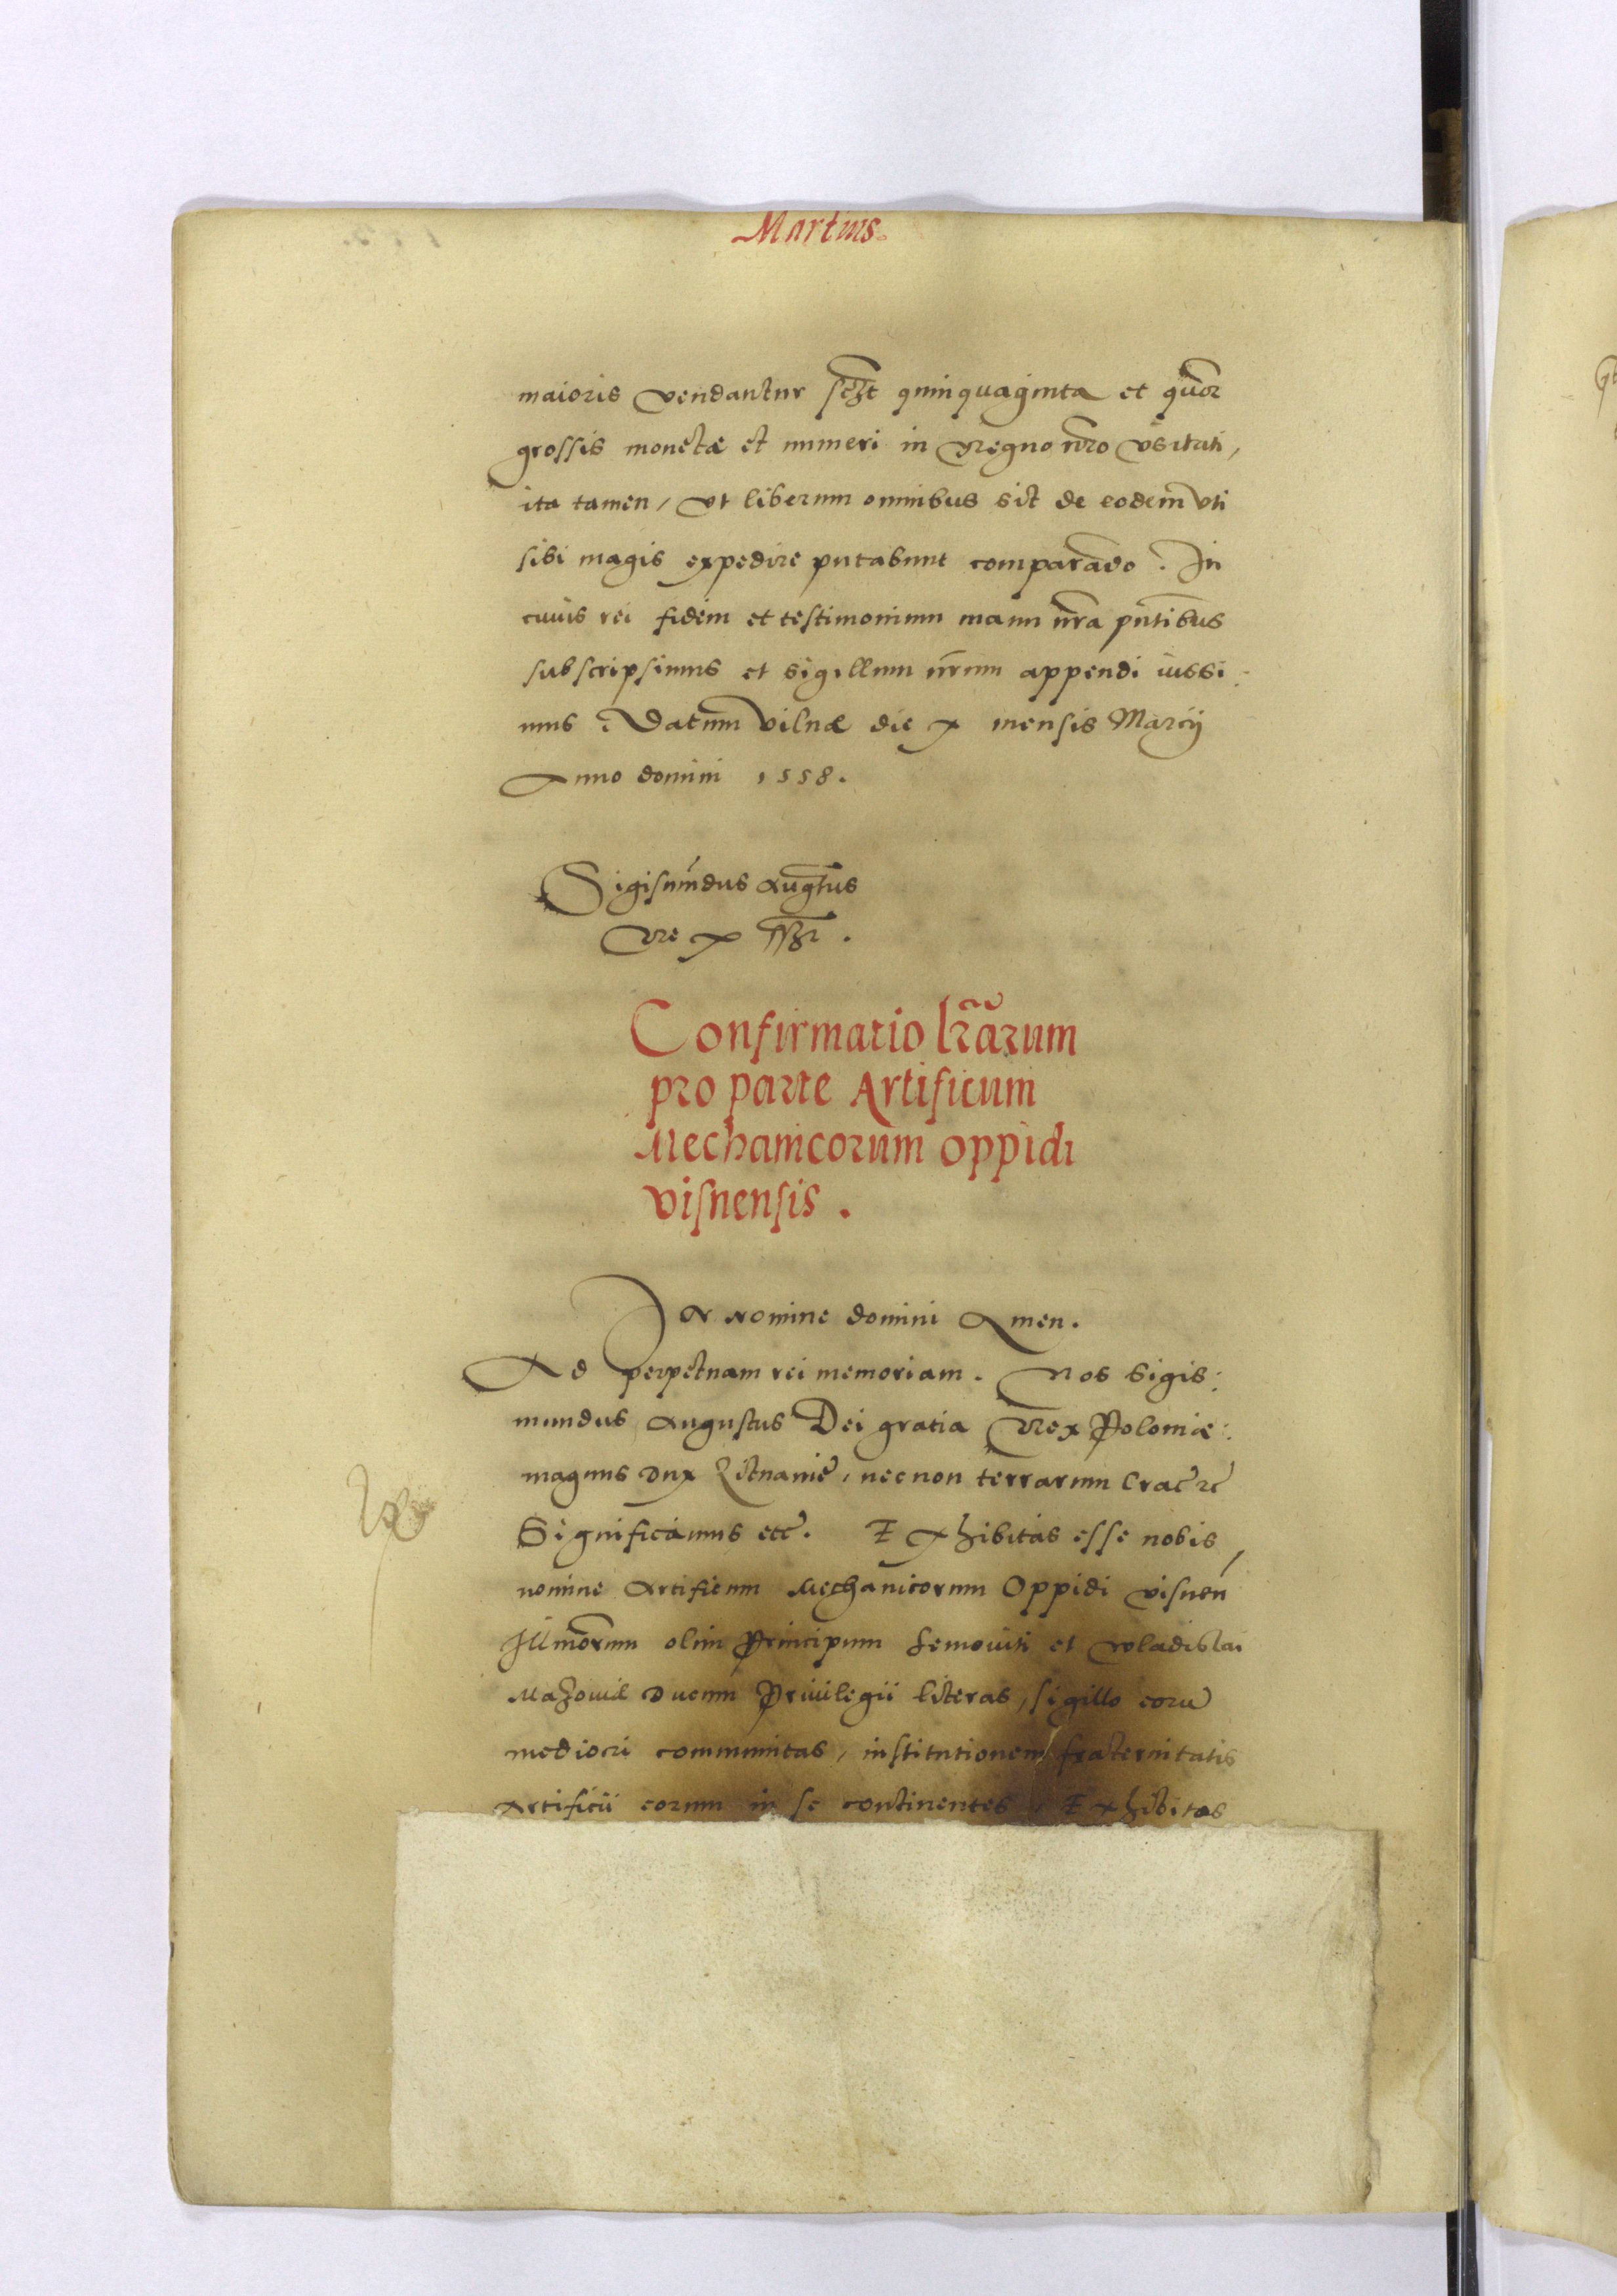 Martius.
maioris vendantur sczt quinquaginta et quor
grossis monetæ et numeri in Regno nro vsitati,
ita tamen, vt liberum omnibus sit de eodem vti
sibi magis expedire putabunt comparãdo. In
cuius rei fidem et testimonium manu nra pntibus
subscripsimus et sigillum nrum appendi iussi:
mus. Datum Vilnæ die x mensis Marcij
Anno domini 1558.
Sigismũdus Augtus
Rex sszt.
Confirmatio lrarum
pro parte Artificum
Mechanicorum oppidi
visnensis.
In nomine domini Amen.
Ad perpetuam rei memoriam. Nos Sigis:
mundus Augustus Dei gratia Rex Poloniæ:
magnus Dux Lituaniẽ, necnon terrarum Crac̃ zc̃
Significamus etc̃. Exhibitas esse nobis
nomine Artificum Mechanicorum Oppidi visnen̄
Illmorum olim Principum Semoviti et Wladislai
Mazouiæ Ducum Priuilegii literas, sigillo eorũ
mediocri communitas, institutionem fraternitatis
Artificii eorum in se continentes, Exhibitas